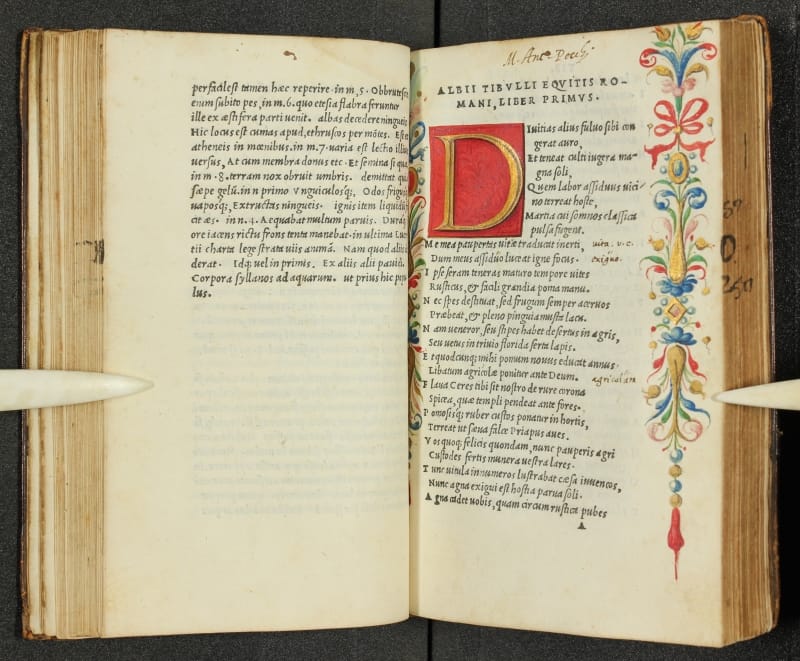 perfacilest tamen hæc reperire. in m, 5. Obbrutescere
enim subito pes, in m. 6. quo etesia flabra feruntur
ille ex æstifera parti uenit. albas decedere ningueis
Hic locus est cumas apud, ethruscos per mótes. Est
atheneis in mœnibus. in m. 7. uaria est lectio illius
uersus, At cum membra donus etc. Et semina si qua,
in m. 8. terram nox obruit umbris. demittat
sæpe gelú. in n primo Vnguiculosq;, Odos frigus
uaposq;, Extructas ningueis. ignis item liquidus
cit æs. in n. 4. Aequabat multum paruis.
ore iacens rictu frons tenta manebat. in ultima Luc
tii charta lege strata uiis animá. Nam quod alii
derat. Idq; uel in primis. Ex aliis alii pauia.
Corpora syllanos ad aquarum. ut prius hic popu
lus.
M. Ant. Pocch
ALBII TIBVLLI EQVITIS RO-
MANI, LIBER PRIMVS.
DIuitias alius fuluo sibi con
gerat auro,
Et teneat culti iugera ma-
gna soli,
Quem labor assiduus uici
no terreat hoste,
Martia cui somnos classica
pulsa fugent.
M e mea paupertas uitæ traducat inerti, uita. v.c.
Dum meus assiduo luceat igne focus. exiguo.
I pse seram teneras maturo tempore uites
Rusticus, & facili grandia poma manu.
N ec spes destituat, sed frugum semper aceruos
Præbeat, & pleno pinguia musta lacu.
N am ueneror, seu stipes habet desertus in agris,
Seu uetus in triuio florida serta lapis.
E t quodcunq; mihi pomum nouus educat annus
Libatum agricolæ ponitur ante Deum. agricolam
F laua Ceres tibi sit nostro de rure corona
Spicea, quæ templi pendeat ante fores.
P omosisq; ruber custos ponatur in hortis,
Terreat ut sæua falce Priapus aues.
V os quoq; felicis quondam, nunc pauperis agri
Custodes fertis munera uestra lares.
T unc uitula innumeros lustrabat cæsa iuuencos,
Nunc agna exigui est hostia parua soli.
A gna cadet uobis, quam circum rustica pubes
A
250